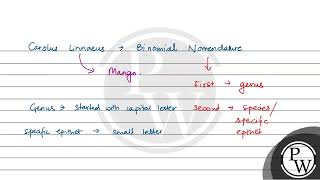 Carolus Linnaeus → Binomial Nomenclature
Mango.
First → genus
Genus → started with capital letter
second → species/
specific epithet
specific epithet → small letter
PW